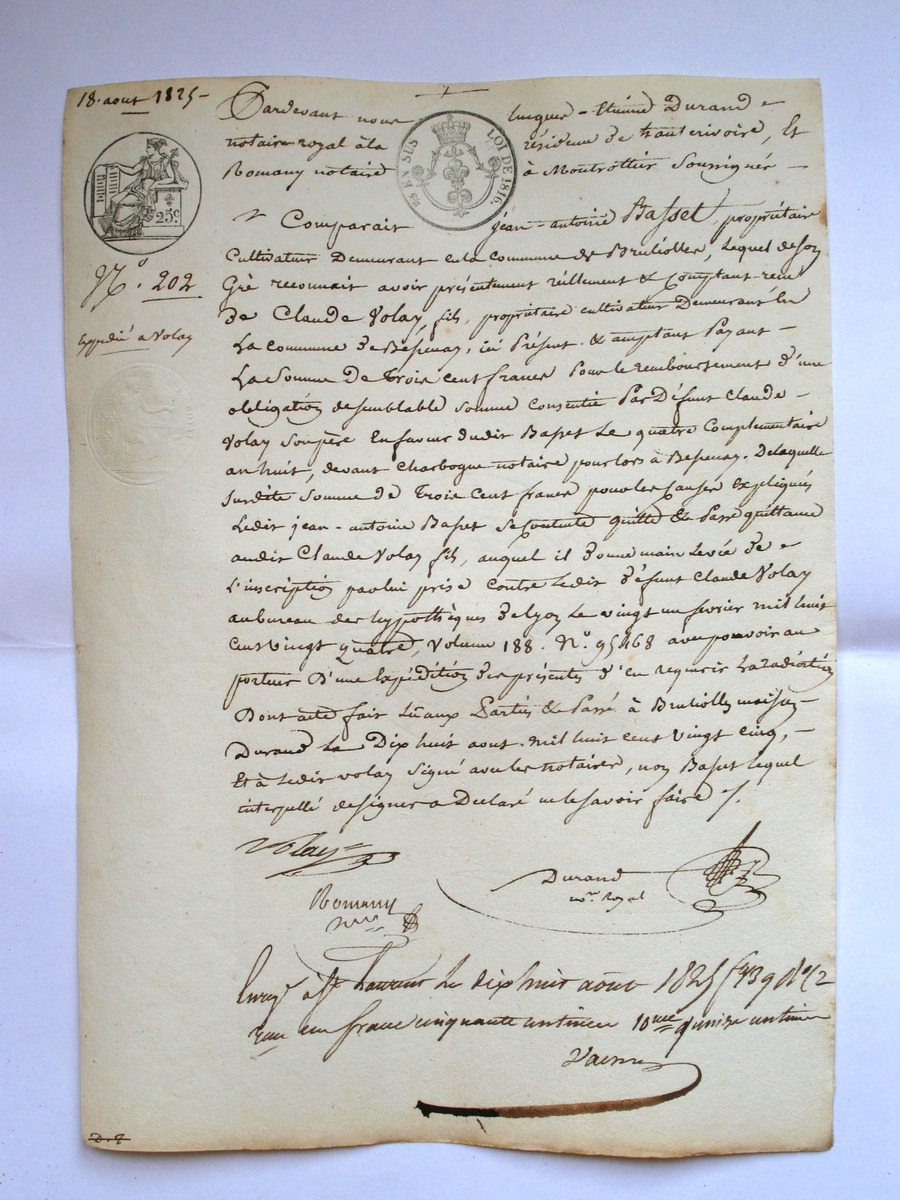 18 aout 1825
Pardevant nous hugue-Etienne Durand
notaire royal à la résidence de hauterivoire, Et
Romany notaire à Montrottier Soussignés
EN SUS LOI DE 1816
25c.
Comparait jean-antoine Basset, propriétaire
Cultivateur Demeurant en la commune de Brulioles, lequel de son
N.o 202
Gré reconnait avoir présentement réellement & Comptant recu
De Claude Volay fils, propriétaire cultivateur Demeurant en
Expedié a Volay
La commune de Bessenay, ici Présent & acceptant Payant
La Somme De Trois cent francs Pour le remboursement d'une
obligation de semblable somme Consentie Par Défunt Claude
Volay Son père En faveur dudit Basset Le quatre Complementaire
an huit, devant Charbogne notaire pour lors à Bessenay. De laquelle
Susdite Somme De Trois Cent francs pour les Causes Expliqués
Ledit jean-antoine Basset Se Contente quitte & Passe quittance
audit Claude Volay fils, auquel il donne main levée De
L'inscription par lui prise Contre Ledit Défunt Claude Volay
au bureau des hypothèques De Lyon Le vingt un fevrier mil huit
Cent vingt quatre, Volume 188. N.o 95468 avec pouvoir au
porteur D'une Expédition des présentes d'en requerir La radiation
Dont acte fait Lu aux Parties & Passé à Brulioles maison
Durand Le Dix huit aout mil huit cent vingt cinq,
Et à Ledit volay Signé avec les notaires, non Basset lequel
interpellé de signer a Declaré ne le savoir faire /.
Volay
Durand
nore. Royal
Romany
nre
Enregé à St Laurent le dix huit août 1825 f.o 39 R.o
Reçu un franc cinquante centimes 10me quinze centimes